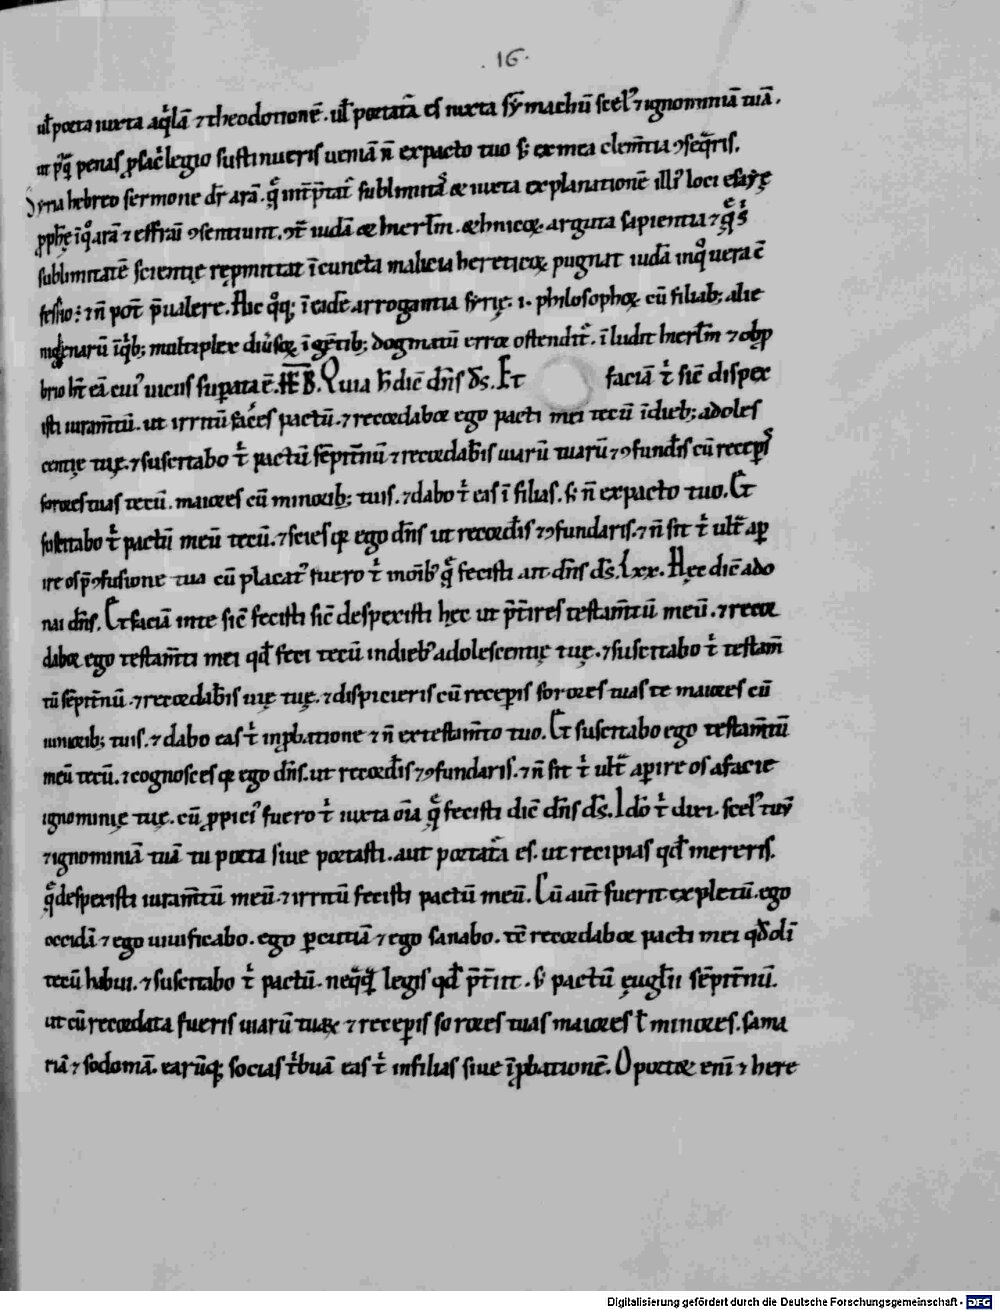 .16.
ul̄ porta iuxta aq̇lā ⁊ theodotionē. ul̄ portatā es iuxta sȳmachū scel᾿ ⁊ ignominiā tuā.
ut p̄q̄ penas sac̓legio sustinueris ueniā n̄ expacto tuo s; exmea clem̄tia ꝯseq̄ris.
Syria hebreo sermone dr̄ arā. q̄ int̄p̄tat᾿ sublimitas & iuxta explanationē illi᾿ loci esaiȩ
ꝓph̄ȩ īq̊ arā ⁊ effraī ꝯsentiunt. ꝯt᾿ iudā & hierl̄m. &hnicoꝝ arguta sapientia ⁊ q̄ s᾿
sublimitatē scientiȩ rep̄mittat īcuncta malicia hereticoꝝ pugnat iudā inq̊ uera ē
fessio: ⁊ n̄ pot̄ p̄ualere. Hic q̊q; īeadē arrogantia syriȩ. i. philosophoꝝ cū filiab; alie
nigenarū īq̇b; multiplex diūsoꝝ ī gētib; dogmatū error ostendit᾿. īludit hierl̄m ⁊ obp
brio h̄t eā cui᾿ uicus supata ē. HEB. Quia h̄ dic̄ dn̄s ds̄. Et faciā t̓ sic̄ dispex
isti iuram̄tū. ut irritū faceres pactū. ⁊ recordabor ego pacti mei tecū īdieb; adoles
centiȩ tuȩ. ⁊ suscitabo t̓ pactū sēpit̄nū ⁊ recordab̄is uiarū tuarū ⁊ ꝯfund̄is cū recep̄is
sorores tuas tecū. maiores cū minorib; tuis. ⁊ dabo t̓ eas ī filias. s; n̄ expacto tuo. Et
suscitabo t̓ pactū meū tecū. ⁊ scies qꝫ ego dn̄s ut record̄is ⁊ ꝯfundaris. ⁊ n̄ sit t̓ ult̄ ap
ire os p̄ꝯfusione tua cū placat᾿ fuero t̓ īomīb᾿ q̄ fecisti ait dn̄s ds̄. Lxx. Hȩc dic̄ ado
nai dn̄s. Et faciā inte sic̄ fecisti sic̄ despexisti hȩc ut p̄t̄ires testam̄tū meū. ⁊ recor
dabor ego testam̄ti mei qd̄ feci tecū indieb᾿ adolescentiȩ tuȩ. ⁊ suscitabo t̓ testam̄
tū sēpit̄nū. ⁊ recordab̄is uiȩ tuȩ. ⁊ dispicieris cū recep̄is sorores tuas te maiores cū
iuniorib; tuis. ⁊ dabo eas t̓ inꝓbatione ⁊ n̄ extestam̄to tuo. Et suscitabo ego testam̄tū
meū tecū. ⁊ cognosces qꝫ ego dn̄s. ut record̄is ⁊ ꝯfundaris. ⁊ n̄ sit t̓ ult̄ ap̄ire os afacie
ignominiȩ tuȩ. cū ꝓpici᾿ fuero t̓ iuxta oīa q̄ fecisti dic̄ dn̄s ds̄. Idō t̓ dixi. scel᾿ tuū
⁊ ignominiā tuā tu porta siue portasti. aut portatā es. ut recipias qd̄ mereris.
q̄ despexisti iuram̄tū meū. ⁊ irritū fecisti pactū meū. Cū aut̄ fuerit expletū. ego
occidā ⁊ ego uiuificabo. ego p̄cutiā ⁊ ego sanabo. tc̄ recordabor pacti mei qd̄ olī
tecū habui. ⁊ suscitabo t̓ pactū. neq̄q̄ legis qd̄ p̄t̄iit. s; pactū ȩugl̄ii sēpit̄nū.
ut cū recordata fueris uiarū tuaꝝ ⁊ recep̄is sorores tuas maiores t̄ minores. sama
riā ⁊ sodomā. earūq; socias t̓buā eas t̓ infilias siue īꝓbationē. Oportet enī ⁊ here
Digitalisierung gefördert durch die Deutsche Forschungsgemeinschaft - DFG